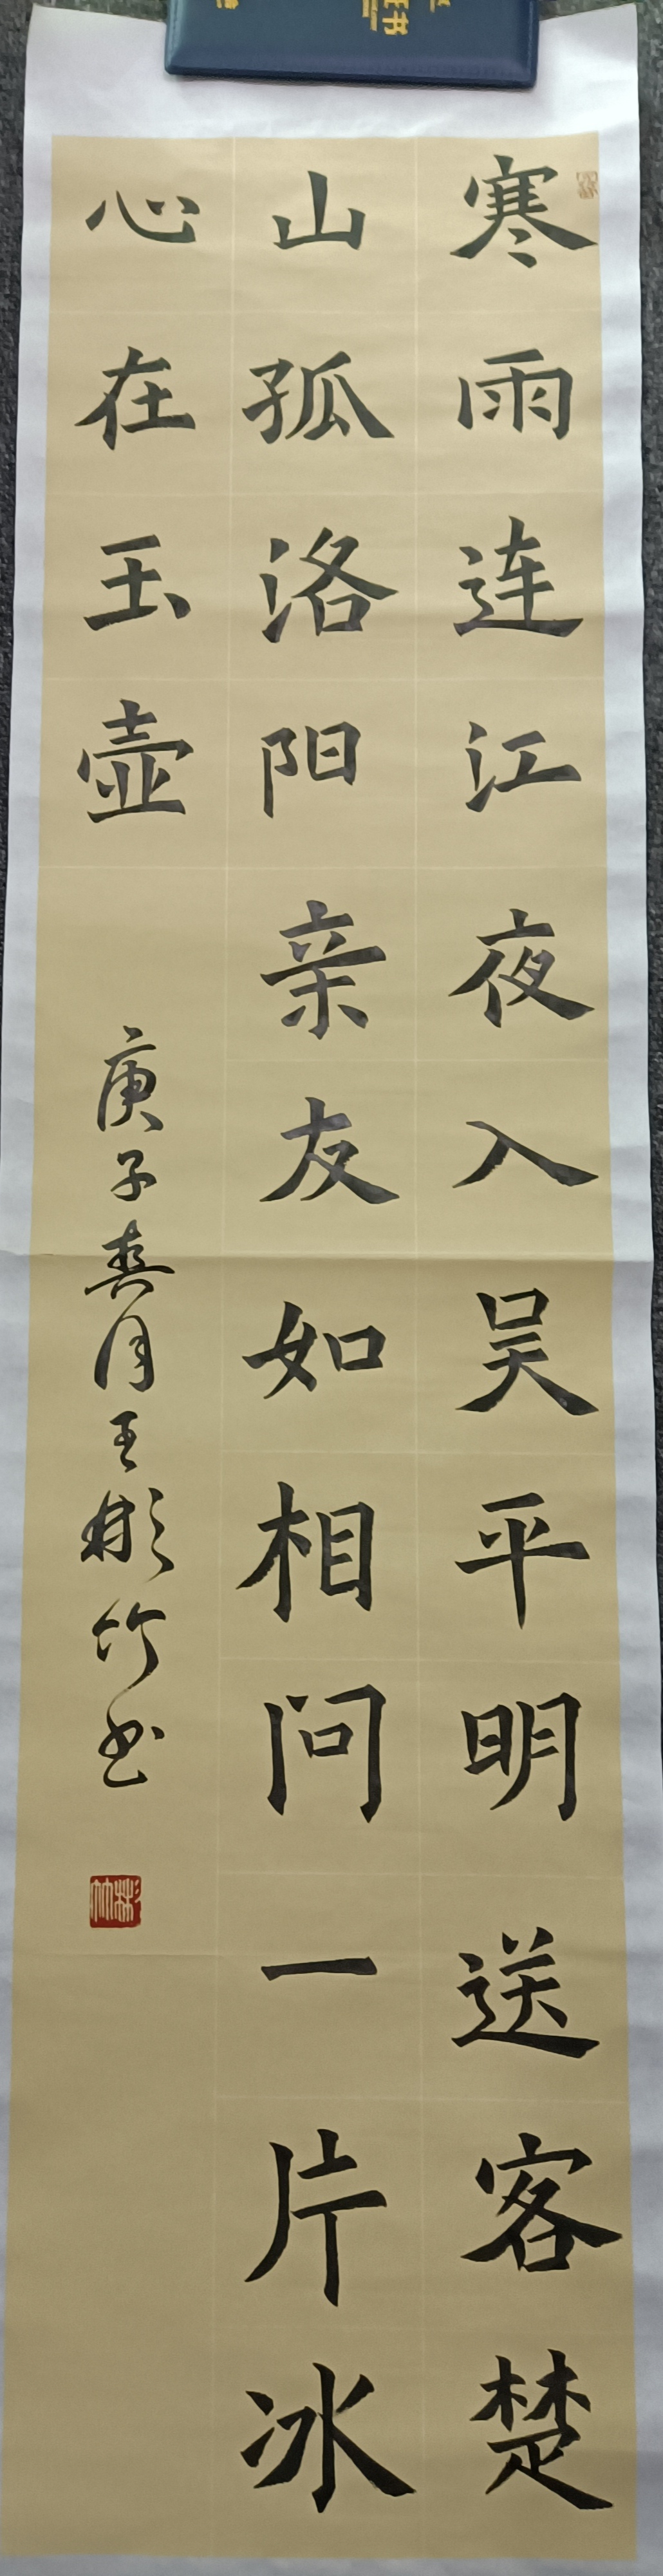 寒雨连江夜入吴平明送客楚
山孤洛阳亲友如相问一片冰
心在玉壶
庚子春月王彬竹书
彬竹